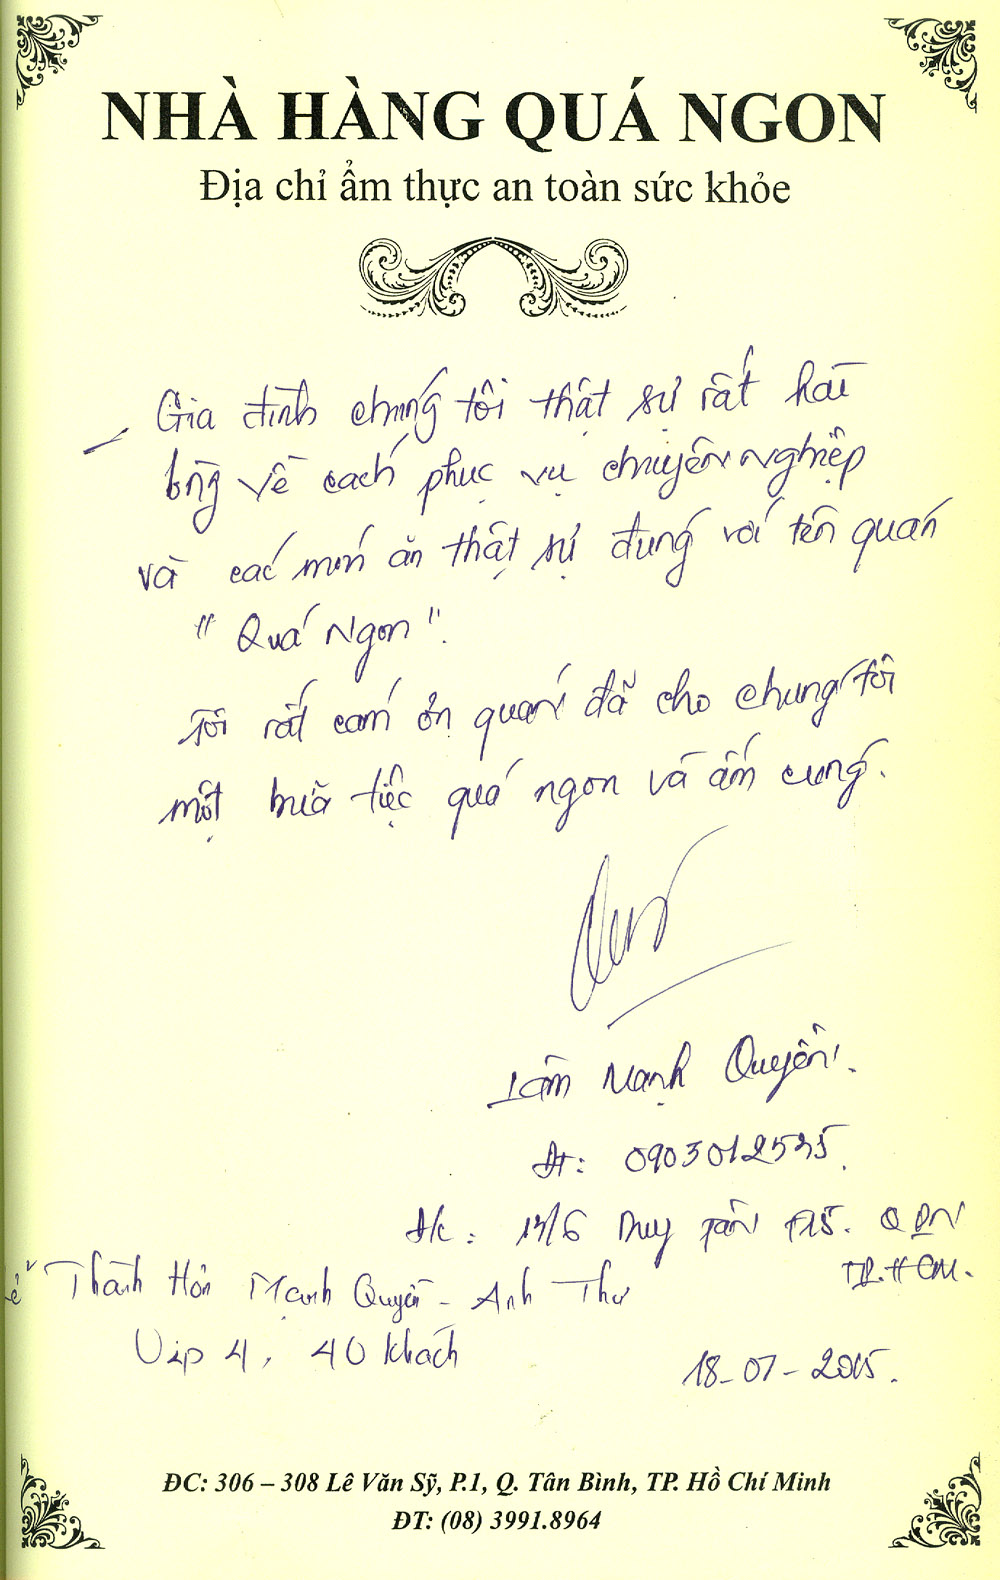 NHÀ HÀNG QUÁ NGON
Địa chỉ ẩm thực an toàn sức khỏe
- Gia đình chúng tôi thật sự rất hài
lòng về cách phục vụ chuyên nghiệp
và các món ăn thật sự đúng với tên quán
"Quá Ngon".
Tôi rất cám ơn quán đã cho chúng tôi
một buổi tiệc quá ngon và ấm cúng.
Lâm Mạnh Quyền.
Đt: 0903012535.
Đ/c: 17/6 Duy Tân F15. Q PN
TP.HCM.
Lễ Thành Hôn Mạnh Quyền - Anh Thư
Vip 4, 40 khách
18-07-2015.
ĐC: 306 – 308 Lê Văn Sỹ, P.1, Q. Tân Bình, TP. Hồ Chí Minh
ĐT: (08) 3991.8964